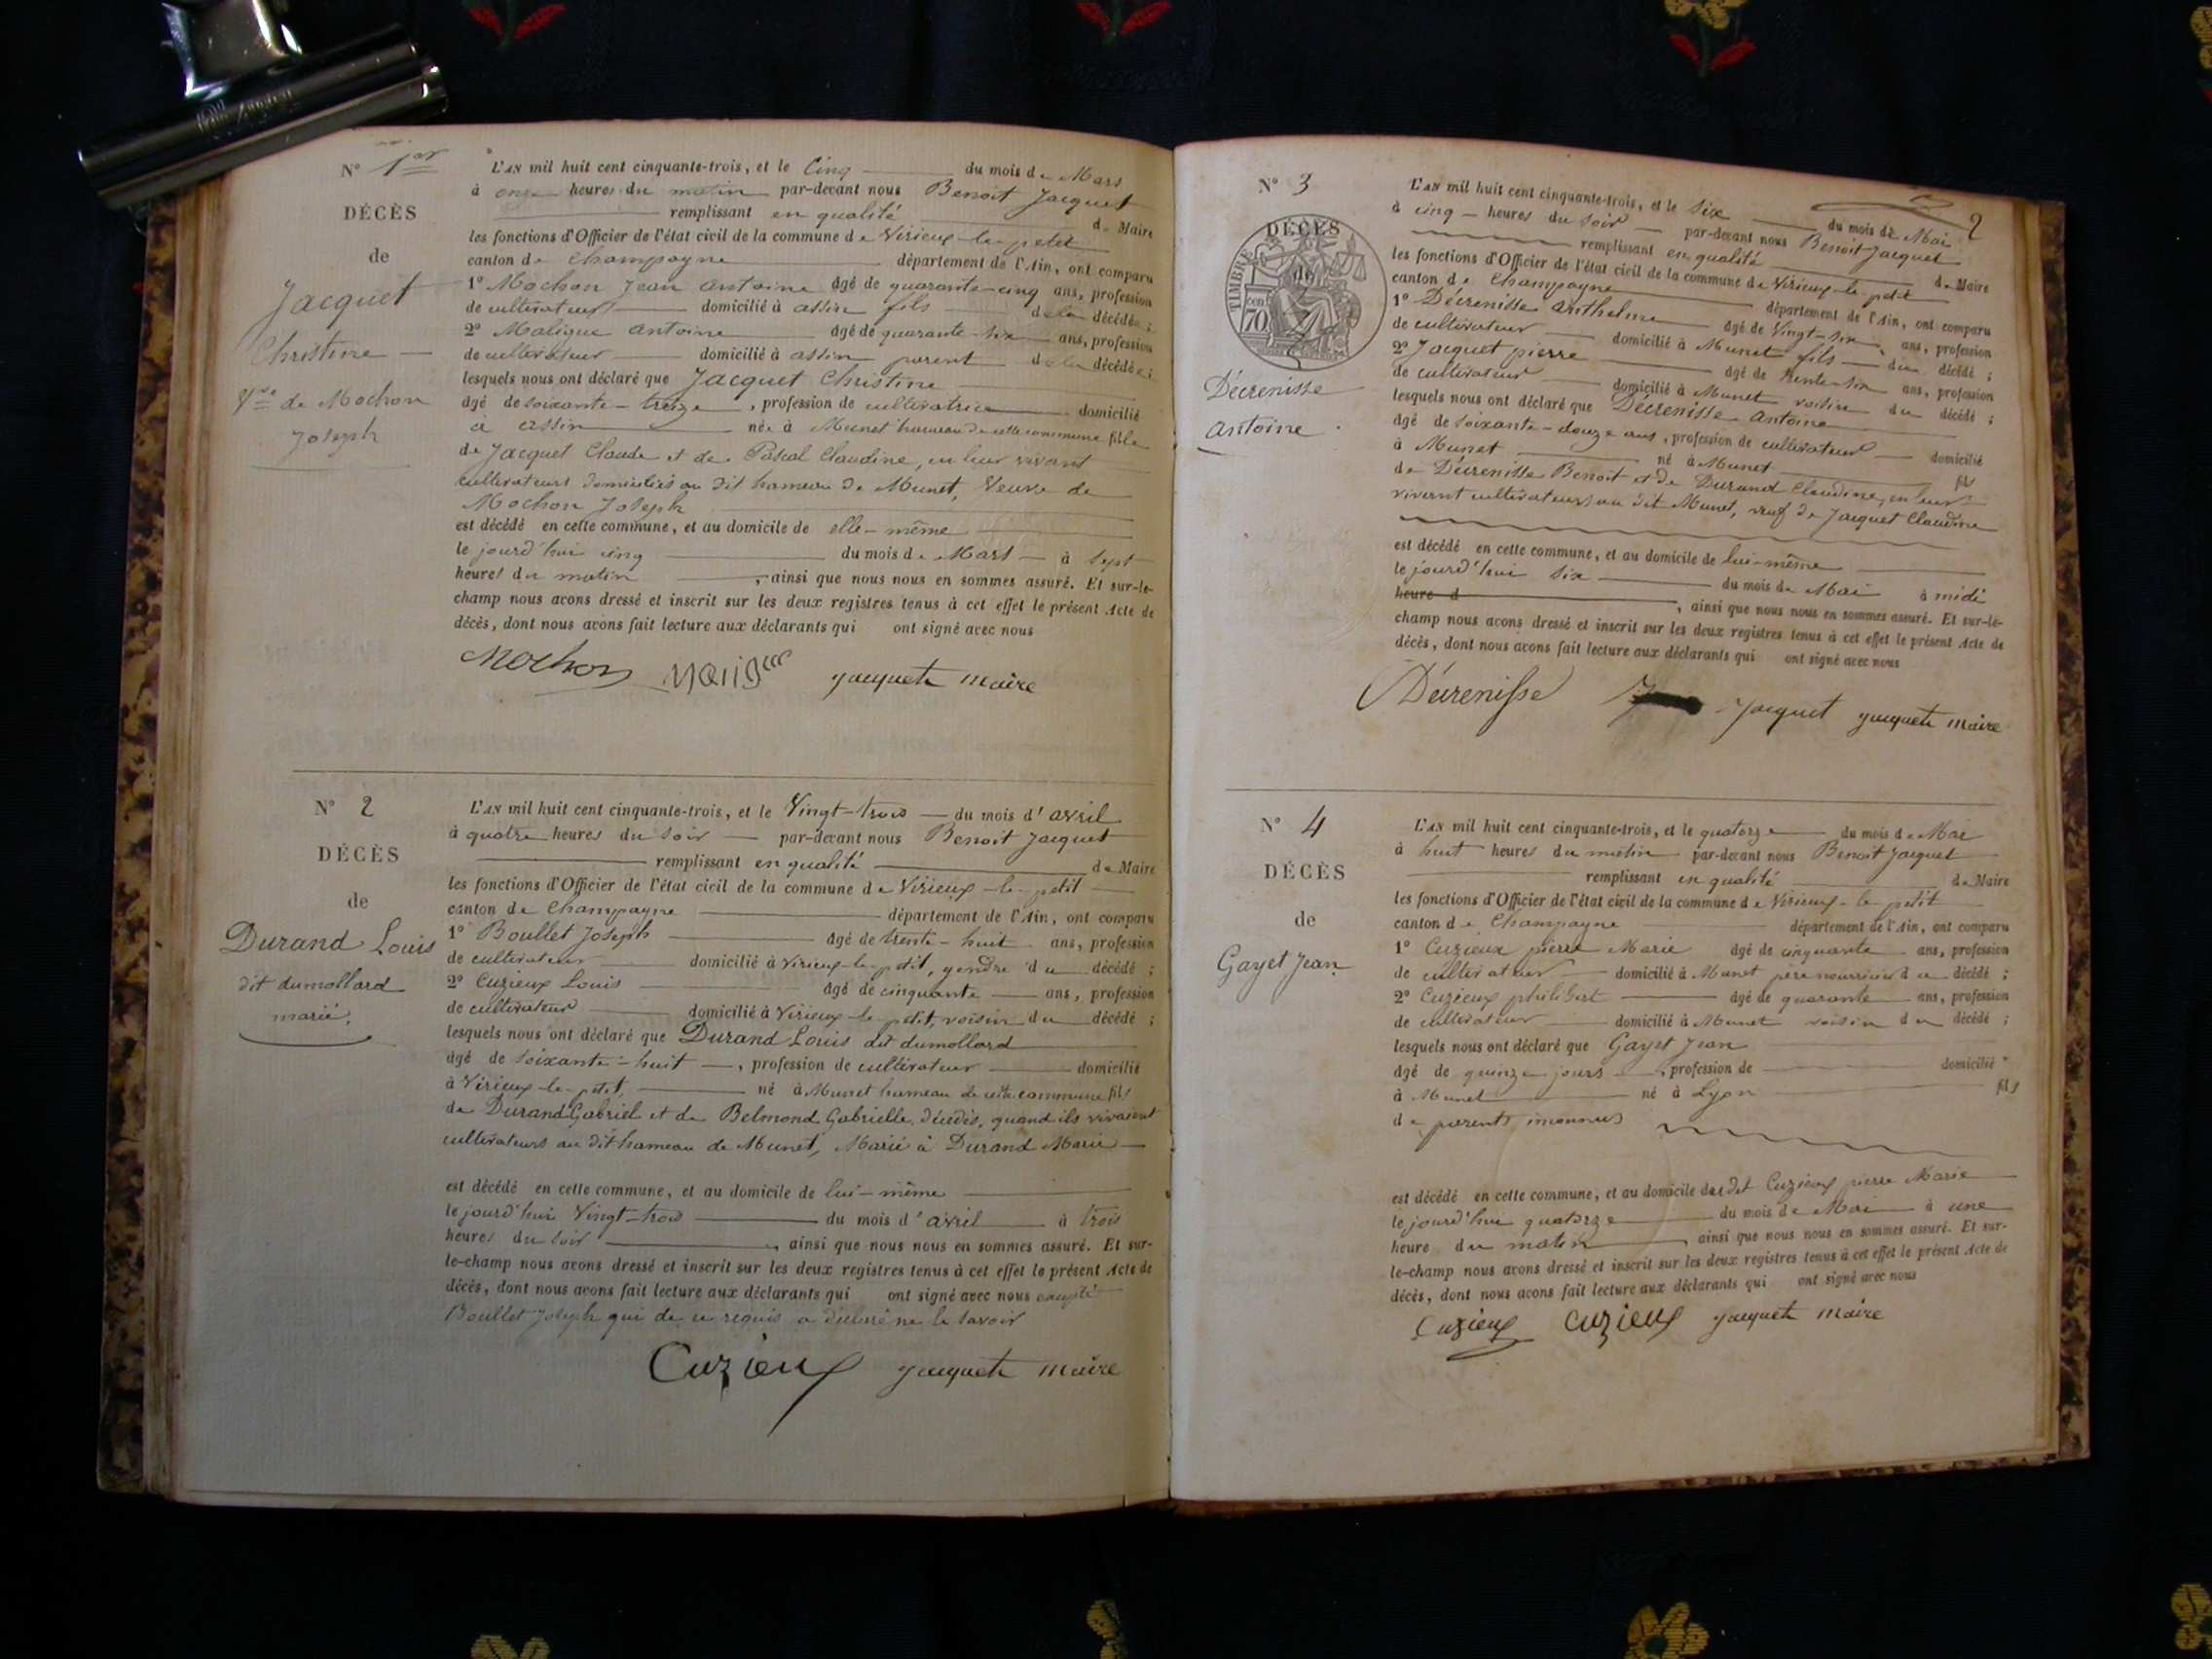 N° 1er
DÉCÈS
de
Jacquet
Christine
Vve de Mochon
Joseph
L'AN mil huit cent cinquante-trois, et le Cinq du mois de Mars
à onze heures du matin par-devant nous Benoit Jacquet
remplissant en qualité de Maire
les fonctions d'Officier de l'état civil de la commune de Virieux-le-petit
canton de Champagne département de l'Ain, ont comparu
1° Mochon Jean Antoine âgé de quarante-cinq ans, profession
de cultivateur domicilié à assin fils de la décédée ;
2° Maligue antoine âgé de quarante-six ans, profession
de cultivateur domicilié à assin parent de la décédée ;
lesquels nous ont déclaré que Jacquet Christine
âgé de soixante-treize, profession de cultivatrice domicilié
à assin née à Munet hameau de cette commune fille
de Jacquet Claude et de Pascal Claudine, en leur vivant
cultivateurs domiciliés au dit hameau de Munet, Veuve de
Mochon Joseph
est décédé en cette commune, et au domicile de elle-même
le jourd'hui cinq du mois de Mars à sept
heures du matin, ainsi que nous nous en sommes assuré. Et sur-le-
champ nous avons dressé et inscrit sur les deux registres tenus à cet effet le présent Acte de
décès, dont nous avons fait lecture aux déclarants qui ont signé avec nous
Mochon jacquet maire
N° 2
DÉCÈS
de
Durand Louis
dit dumollard
marié.
L'AN mil huit cent cinquante-trois, et le Vingt-trois du mois d'avril
à quatre heures du soir par-devant nous Benoit Jacquet
remplissant en qualité de Maire
les fonctions d'Officier de l'état civil de la commune de Virieux-le-petit
canton de Champagne département de l'Ain, ont comparu
1° Boullet Joseph âgé de trente-huit ans, profession
de cultivateur domicilié à Virieux-le-petit, gendre du décédé ;
2° Cuzieux Louis âgé de cinquante ans, profession
de cultivateur domicilié à Virieux-le-petit, voisin du décédé ;
lesquels nous ont déclaré que Durand Louis dit dumollard
âgé de soixante-huit, profession de cultivateur domicilié
à Virieux-le-petit, né à Munet hameau de cette commune fils
de Durand Gabriel et de Belmond Gabrielle, décédés, quand ils vivaient
cultivateurs au dit hameau de Munet, Marié à Durand Marie
est décédé en cette commune, et au domicile de lui-même
le jourd'hui Vingt-trois du mois d'avril à trois
heures du soir, ainsi que nous nous en sommes assuré. Et sur-
le-champ nous avons dressé et inscrit sur les deux registres tenus à cet effet le présent Acte de
décès, dont nous avons fait lecture aux déclarants qui ont signé avec nous excepté
Boullet Joseph qui de ce requis a déclaré ne le savoir
Cuzieux jacquet maire
2
N° 3
DÉCÈS
de
TIMBRE
70 cen
Décrenisse
antoine
L'AN mil huit cent cinquante-trois, et le six du mois de Mai
à cinq heures du soir par-devant nous Benoit Jacquet
remplissant en qualité de Maire
les fonctions d'Officier de l'état civil de la commune de Virieux-le-petit
canton de Champagne département de l'Ain, ont comparu
1° Décrenisse anthelme âgé de Vingt-six ans, profession
de cultivateur domicilié à Munet fils du décédé ;
2° Jacquet pierre âgé de trente-six ans, profession
de cultivateur domicilié à Munet voisin du décédé ;
lesquels nous ont déclaré que Décrenisse antoine
âgé de soixante-douze ans, profession de cultivateur domicilié
à Munet né à Munet fils
de Décrenisse Benoit et de Durand Claudine, en leur
vivant cultivateurs au dit Munet, veuf de Jacquet Claudine
est décédé en cette commune, et au domicile de lui-même
le jourd'hui six du mois de Mai à midi
heure d, ainsi que nous nous en sommes assuré. Et sur-le-
champ nous avons dressé et inscrit sur les deux registres tenus à cet effet le présent Acte de
décès, dont nous avons fait lecture aux déclarants qui ont signé avec nous
Décrenisse Jacquet jacquet maire
N° 4
DÉCÈS
de
Gayet Jean
L'AN mil huit cent cinquante-trois, et le quatorze du mois de Mai
à huit heures du matin par-devant nous Benoit Jacquet
remplissant en qualité de Maire
les fonctions d'Officier de l'état civil de la commune de Virieux-le-petit
canton de Champagne département de l'Ain, ont comparu
1° Cuzieux pierre Marie âgé de cinquante ans, profession
de cultivateur domicilié à Munet père nourricier du décédé ;
2° Cuzieux philibert âgé de quarante ans, profession
de cultivateur domicilié à Munet voisin du décédé ;
lesquels nous ont déclaré que Gayet Jean
âgé de quinze jours, profession de domicilié
à Munet né à Lyon fils
de parents inconnus
est décédé en cette commune, et au domicile dudit Cuzieux pierre Marie
le jourd'hui quatorze du mois de Mai à une
heure du matin, ainsi que nous nous en sommes assuré. Et sur-
le-champ nous avons dressé et inscrit sur les deux registres tenus à cet effet le présent Acte de
décès, dont nous avons fait lecture aux déclarants qui ont signé avec nous
Cuzieux Cuzieux jacquet maire